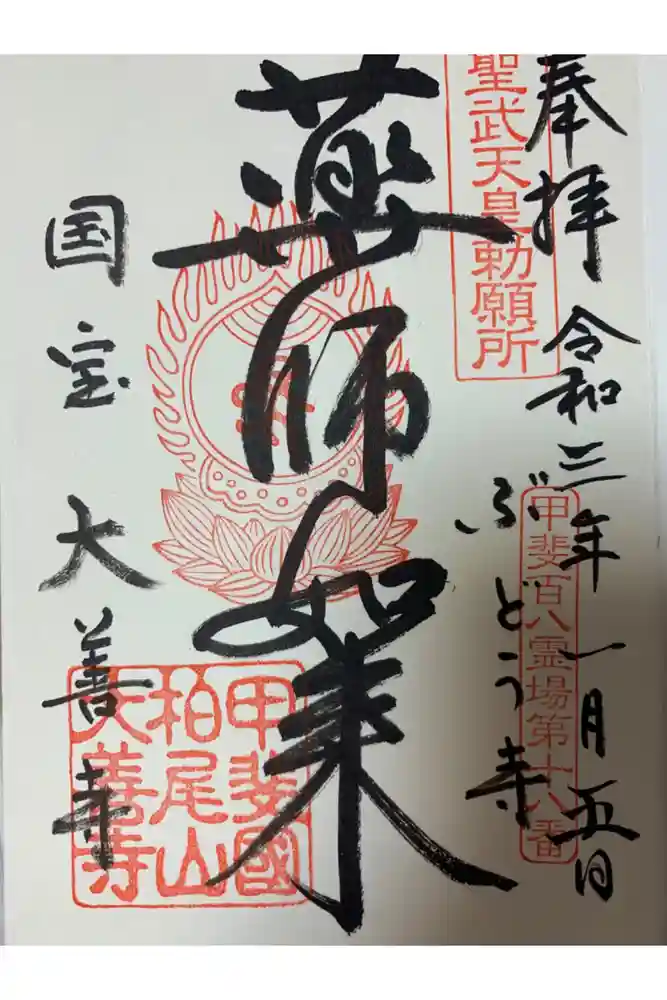 奉拝
令和三年一月五日
聖武天皇勅願所
甲斐百八霊場第十八番
ぶどう寺
薬師如来
国宝 大善寺
甲斐國
柏尾山
大善寺